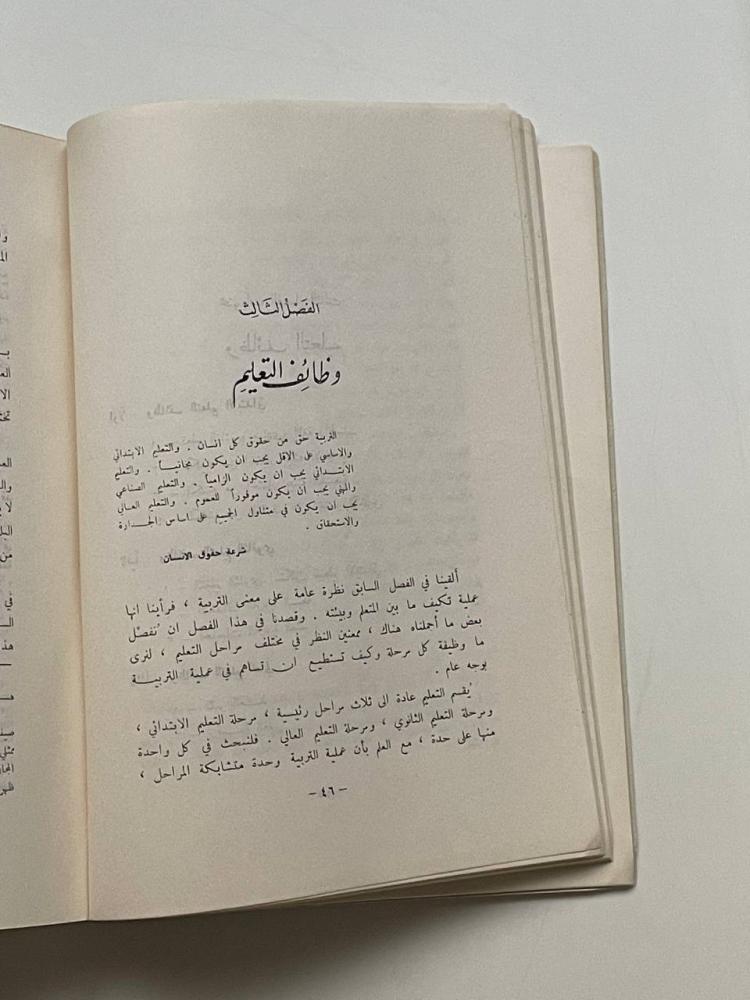 الفَصْلُ الثَالِث
وَظائِف التَعْلِيم
التربية حق من حقوق كل انسان . والتعليم الابتدائي
والاساسي على الاقل يجب ان يكون مجانيـاً . والتعليم
الابتــدائي يجب ان يكون الزامياً . والتعليم الصناعي
والمهني يجب ان يكون موفوراً للعموم . والتعليم العـالي
يجب ان يكون في متناول الجميع على اساس الجـدارة
والاستحقاق .
شرعة حقوق الانسان
ألقينا في الفصل السابق نظرة عامة على معنى التربية ، فرأينا انها
عملية تكيف ما بين المتعلم وبيئته . وقصدنا في هذا الفصل ان نُفصّل
بعض ما أجملناه هناك ، ممعنين النظر في مختلف مراحل التعليم ، لنرى
ما وظيفة كل مرحلة وكيف تستطيع ان تساهم في عملية التربيـــة
بوجه عام .
يُقسم التعليم عادة الى ثلاث مراحل رئيسية ، مرحلة التعليم الابتدائي ،
ومرحلة التعليم الثانوي ، ومرحلة التعليم العالي . فلنبحث في كل واحدة
منها على حدة ، مع العلم بأن عملية التربية وحدة متشابكة المراحل ،
- ٤٦ -